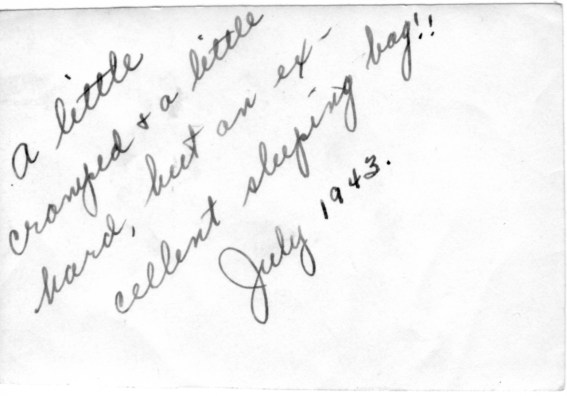 A little
cramped & a little
hard, but an ex-
cellent sleeping bag!!
July 1943.